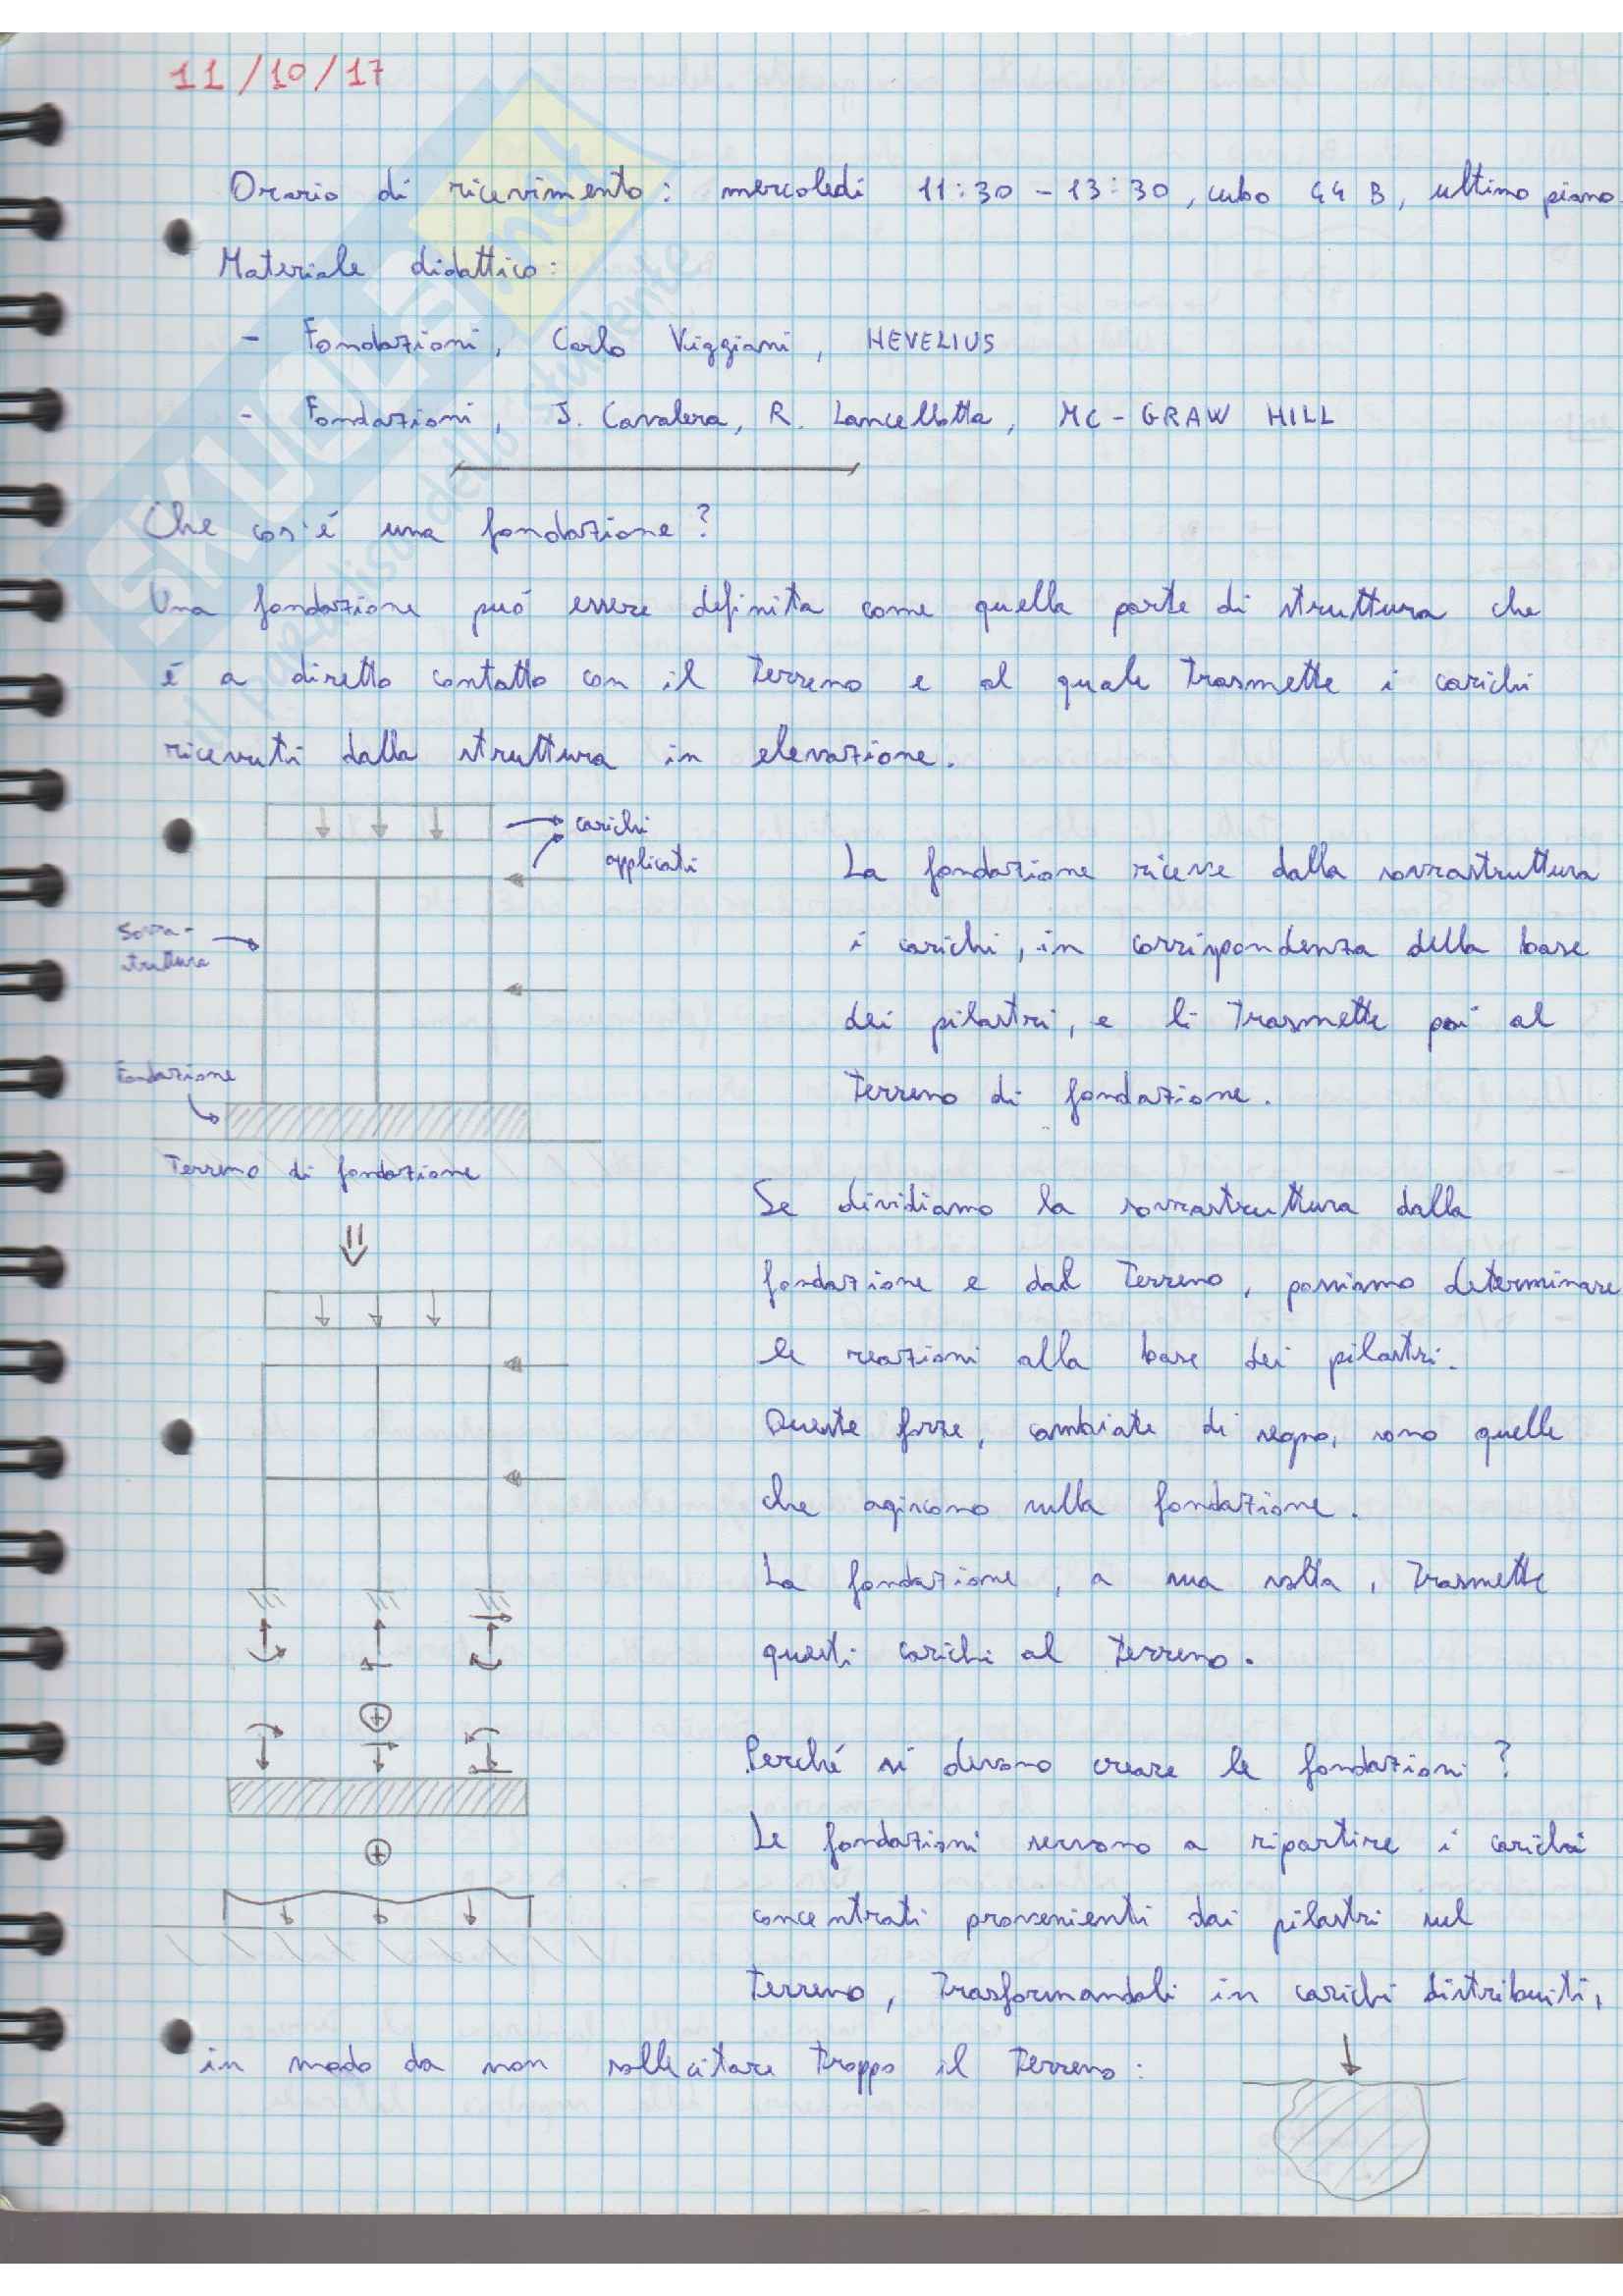 11/10/17
Orario di ricevimento: mercoledi 11:30 - 13:30, cubo 44 B, ultimo piano.
Materiale didattico:
- Fondazioni, Carlo Viggiani, HEVELIUS
- Fondazioni, J. Cavalera, R. Lancellotta, MC-GRAW HILL
Che cos'é una fondazione?
Una fondazione puó essere definita come quella parte di struttura che
é a diretto contatto con il terreno e al quale trasmette i carichi
ricevuti dalla struttura in elevazione.
carichi
applicati
Sovra-
struttura
Fondazione
Terreno di fondazione
La fondazione riceve dalla sovrastruttura
i carichi, in corrispondenza della base
dei pilastri, e li trasmette poi al
terreno di fondazione.
Se dividiamo la sovrastruttura dalla
fondazione e dal terreno, possiamo determinare
le reazioni alla base dei pilastri.
Queste forze, cambiate di segno, sono quelle
che agiscono sulla fondazione.
La fondazione, a sua volta, trasmette
questi carichi al terreno.
Perché si devono creare le fondazioni?
Le fondazioni servono a ripartire i carichi
concentrati provenienti dai pilastri sul
terreno, trasformandoli in carichi distribuiti,
in modo da non sollecitare troppo il terreno:
SKUOLA.net
il paradiso dello studente